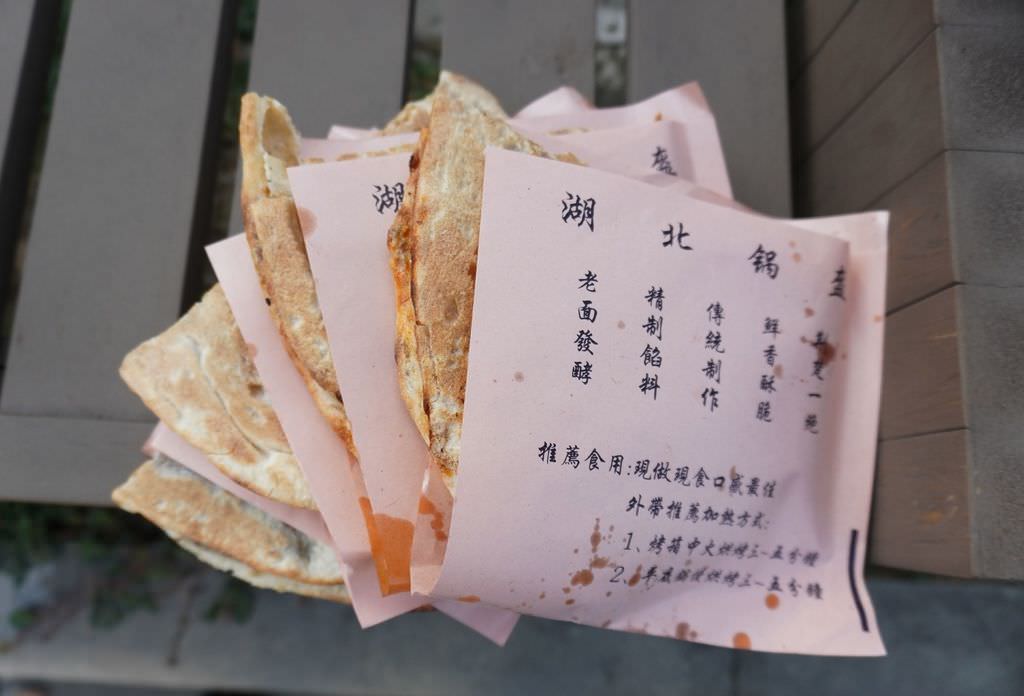 湖北锅盔
老面發酵
精制餡料
傳統制作
鮮香酥脆
一絕
推薦食用:現做現食口感最佳
外帶推薦加熱方式:
1、烤箱中火烘烤三~五分鐘
2、平底鍋慢烘烤三~五分鐘
湖
盔